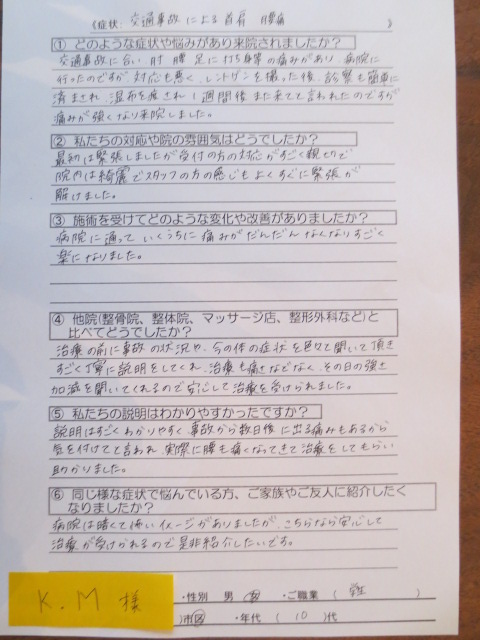 《症状: 交通事故による首肩 腰痛 》
① どのような症状や悩みがあり来院されましたか？
交通事故に合い 肘 腰 足に打ち身等の痛みがあり 病院に
行ったのですが 対応も悪く、レントゲンを撮った後、診察も簡単に
済まされ 湿布を渡され 1週間後また来てと言われたのですが
痛みが強くなり来院しました。
② 私たちの対応や院の雰囲気はどうでしたか？
最初は緊張しましたが受付の方の対応がすごく親切で
院内は綺麗でスタッフの方の感じもよくすぐに緊張が
解けました。
③ 施術を受けてどのような変化や改善がありましたか？
病院に通っていくうちに痛みがだんだんなくなりすごく
楽になりました。
④ 他院(整骨院、整体院、マッサージ店、整形外科など)と
比べてどうでしたか？
治療の前に事故の状況や、今の体の症状を色々と聞いて頂き
すごく丁寧に説明をしてくれ、治療も痛さなどなく、その日の強さ
加減を聞いてくれるので安心して治療を受けられました。
⑤ 私たちの説明はわかりやすかったですか？
説明はすごくわかりやすく 事故から数日後に出る痛みもあるから
気を付けてと言われ 実際に腰も痛くなってきて治療をしてもらい
助かりました。
⑥ 同じ様な症状で悩んでいる方、ご家族やご友人に紹介したく
なりましたか？
病院は暗くて怖いイメージがありましたが、こちらなら安心して
治療が受けられるので是非紹介したいです。
K.M 様
・性別 男 女 ・ご職業（ 学生 ）
）市区 ・年代（ 10 ）代